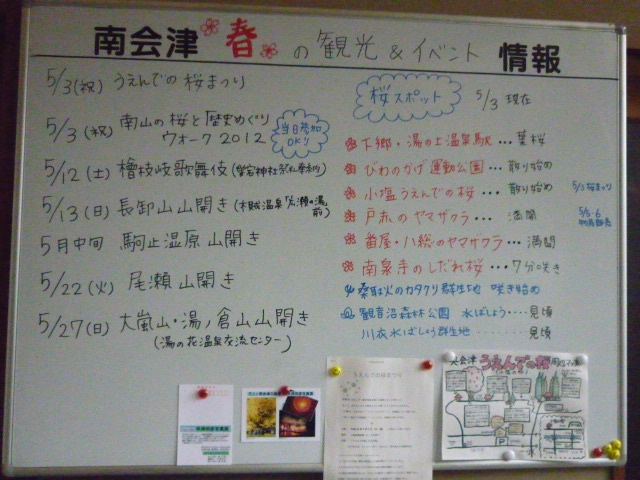 南会津 春 の 観光 & イベント 情報
5/3(祝) うえんでの桜まつり
5/3(祝) 南山の桜と歴史めぐり
ウォーク2012
当日参加
OK!!
5/12(土) 檜枝岐歌舞伎
5/13(日) 長卸山山開き
5月中旬 駒止湿原 山開き
5/22(火) 尾瀬 山開き
5/27(日) 大嵐山・湯ノ倉山山開き
(湯の花温泉交流センター)
桜スポット
5/3 現在
下郷・湯の上温泉駅…葉桜
びわのかげ運動公園…散り始め
小塩うえんでの桜…散り始め 5/3桜まつり
戸赤のヤマザクラ… 満開 5/5・6
番屋・八総のヤマザクラ…満開
南泉寺のしだれ桜…7分咲き
桑取火のカタクリ群生地 咲き始め
観音沼森林公園 水ばしょう‥‥見頃
川衣水ばしょう群生地‥‥‥見頃
うえんでの桜まつり
うえんでの桜